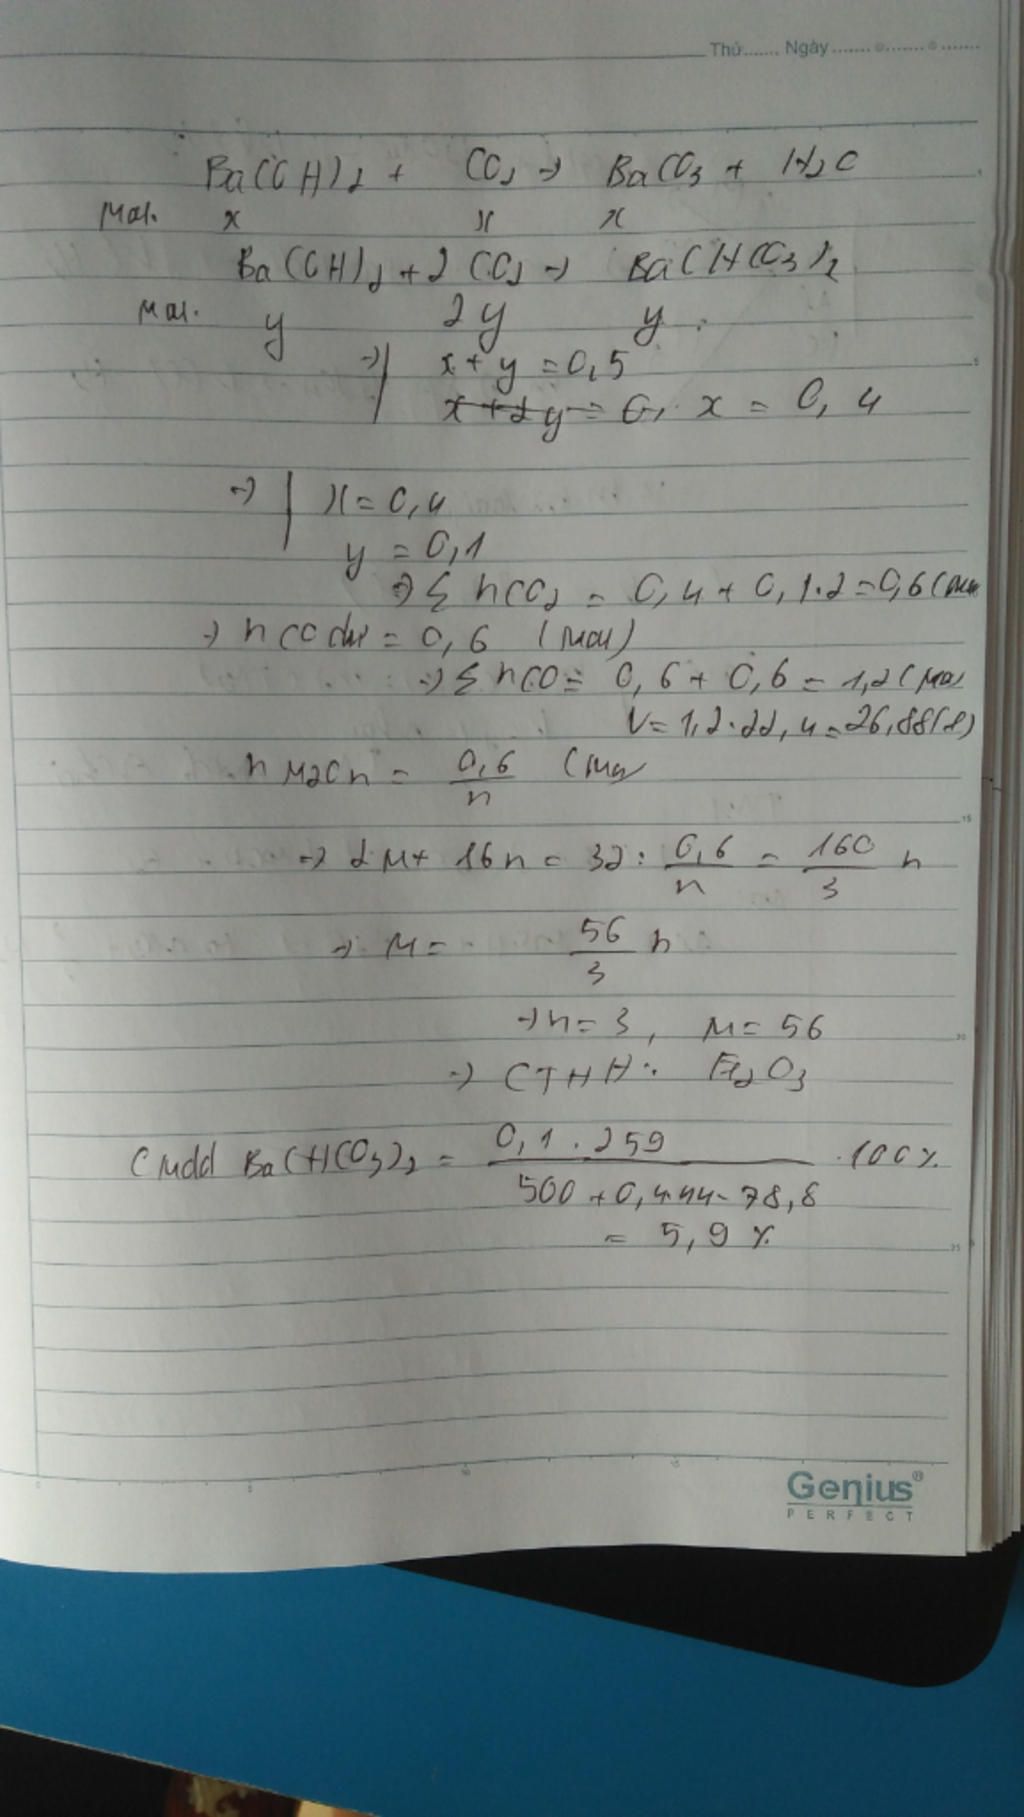 Thứ....... Ngày ....... ....... .......
Ba(OH)2 + CO2 -> BaCO3 + H2O
Mol. x x x
Ba(OH)2 + 2CO2 -> Ba(HCO3)2
Mol. y 2y y
-> | x + y = 0,5
x + 2y = 0, x = 0,4
-> | x = 0,4
y = 0,1
-> Σ nCO2 = 0,4 + 0,1.2 = 0,6 (mol
-> nCO dư = 0,6 (mol)
-> Σ nCO = 0,6 + 0,6 = 1,2 (mol
V = 1,2.22,4 = 26,88(l)
n M2On = 0,6/n (mol
-> 2M + 16n = 32 : 0,6/n = 160/3 n
-> M = 56/3 n
-> n = 3, M = 56
-> CTHH: Fe2O3
CMdd Ba(HCO3)2 = 0,1.259 / 500 + 0,4.44 - 78,8 .100%
= 5,9 %
Genius®
PERFECT